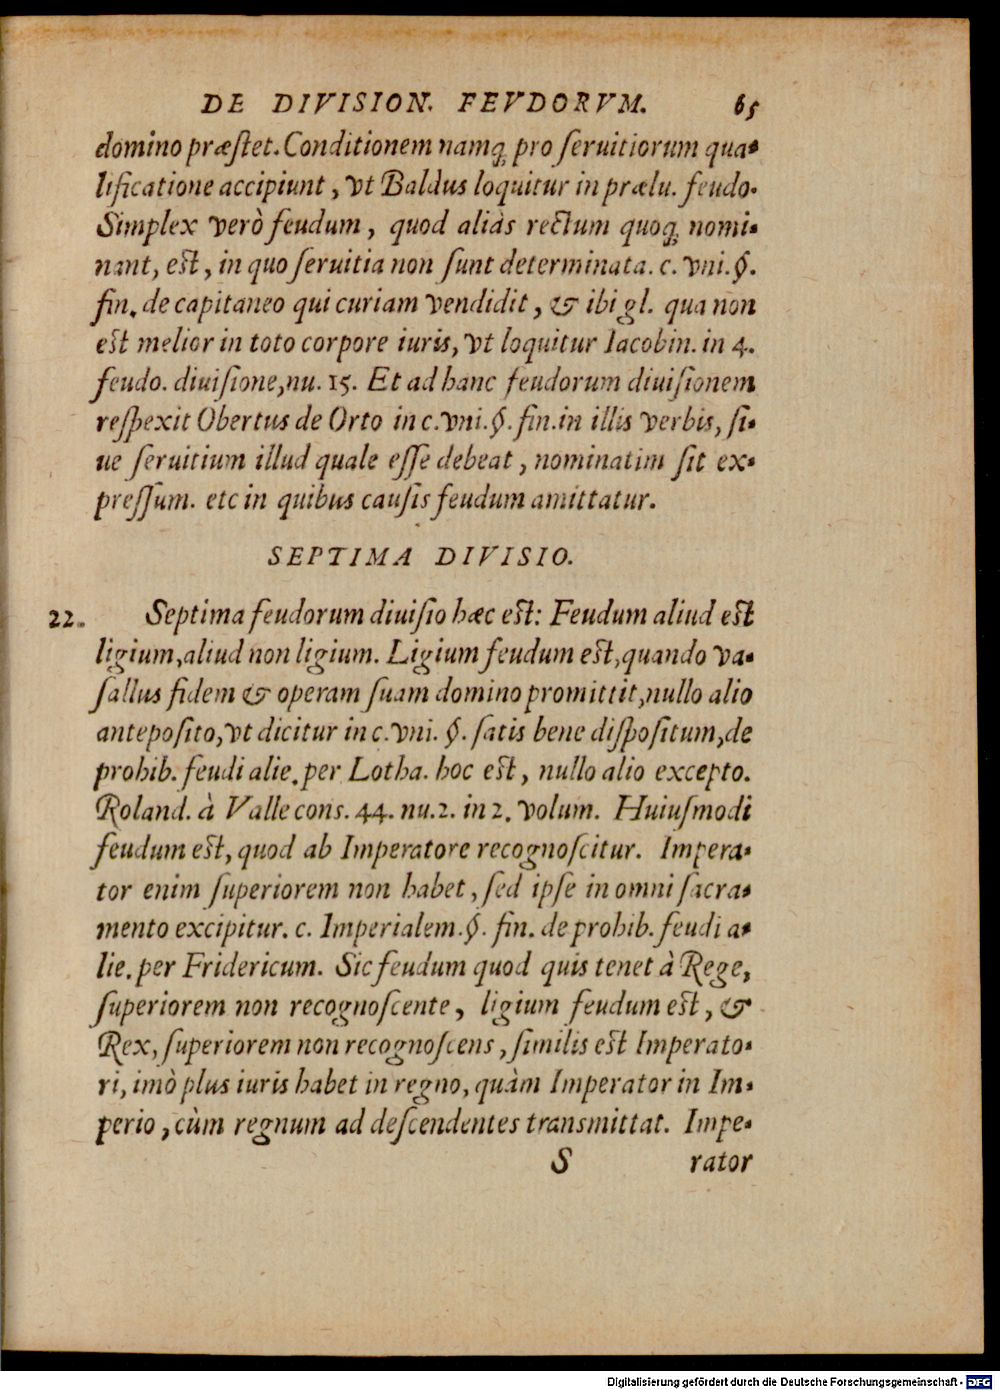 DE DIVISION. FEVDORVM. 65
domino præſtet. Conditionem namq́; pro ſeruitiorum qua-
lificatione accipiunt, vt Baldus loquitur in prælu. feudo.
Simplex verò feudum, quod aliàs rectum quoq́; nomi-
nant, eſt, in quo ſeruitia non ſunt determinata. c. vni. §.
fin. de capitaneo qui curiam vendidit, & ibi gl. qua non
eſt melior in toto corpore iuris, vt loquitur Iacobin. in 4.
feudo. diuiſione, nu. 15. Et ad hanc feudorum diuiſionem
reſpexit Obertus de Orto in c. vni. §. fin. in illis verbis, ſi-
ue ſeruitium illud quale eſſe debeat, nominatim ſit ex-
preſſum. etc in quibus cauſis feudum amittatur.
SEPTIMA DIVISIO.
22. Septima feudorum diuiſio hæc eſt: Feudum aliud eſt
ligium, aliud non ligium. Ligium feudum eſt, quando va-
ſallus fidem & operam ſuam domino promittit, nullo alio
antepoſito, vt dicitur in c. vni. §. ſatis bene diſpoſitum, de
prohib. feudi alie. per Lotha. hoc eſt, nullo alio excepto.
Roland. à Valle cons. 44. nu. 2. in 2. volum. Huiuſmodi
feudum eſt, quod ab Imperatore recognoſcitur. Impera-
tor enim ſuperiorem non habet, ſed ipſe in omni ſacra-
mento excipitur. c. Imperialem. §. fin. de prohib. feudi a-
lie. per Fridericum. Sic feudum quod quis tenet à Rege,
ſuperiorem non recognoſcente, ligium feudum eſt, &
Rex, ſuperiorem non recognoſcens, ſimilis eſt Imperato-
ri, imò plus iuris habet in regno, quàm Imperator in Im-
perio, cùm regnum ad deſcendentes transmittat. Impe-
S rator
Digitalisierung gefördert durch die Deutsche Forschungsgemeinschaft - DFG